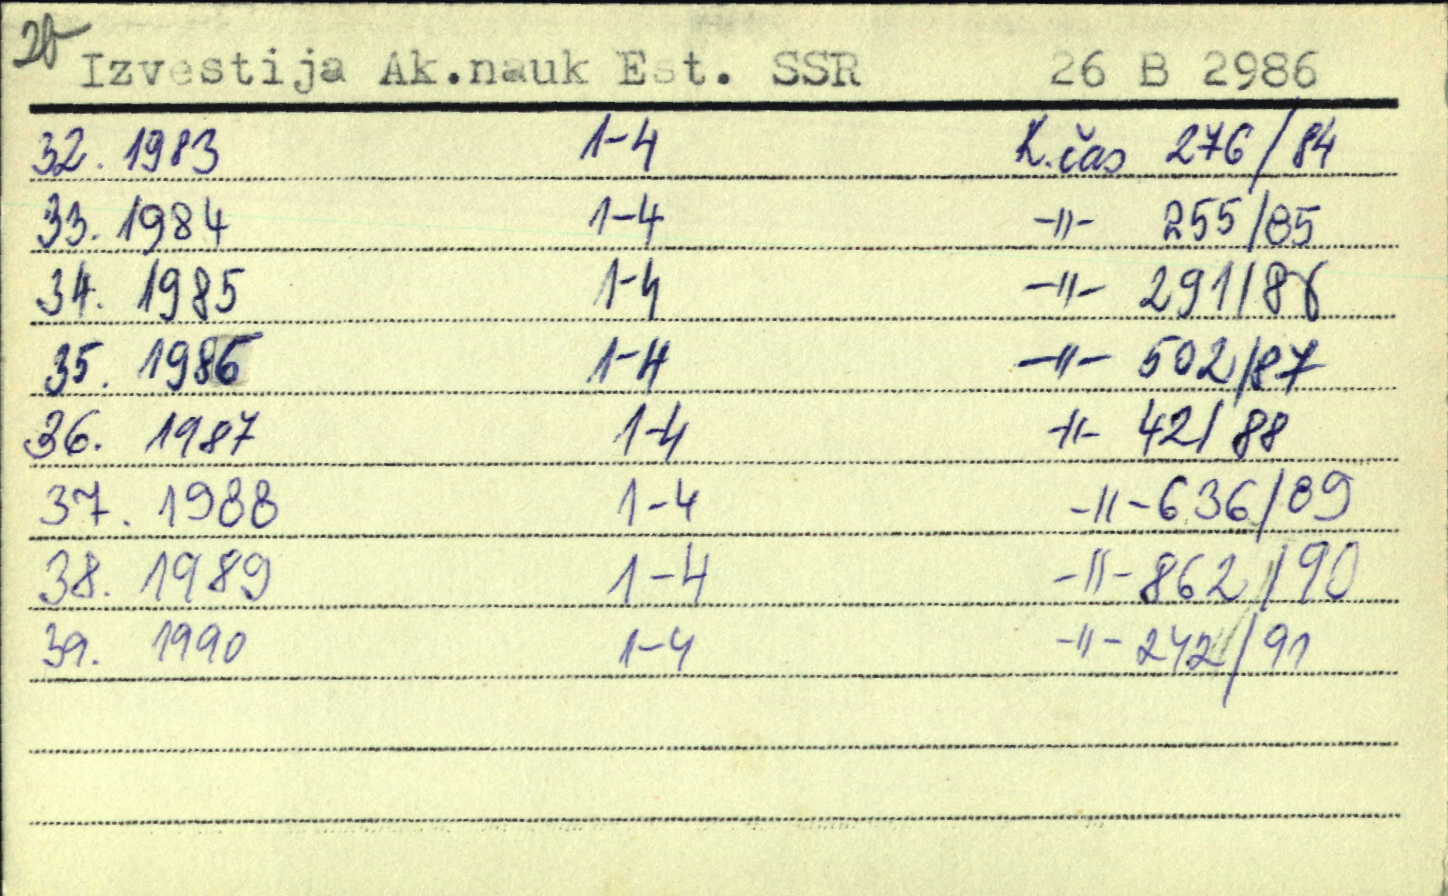 Izvestija Ak.nauk Est. SSR 26 B 2986
32. 1983 1-4 K.čas 276/84
33. 1984 1-4 -"- 255/85
34. 1985 1-4 -"- 291/86
35. 1986 1-4 -"- 502/87
36. 1987 1-4 -"- 42/88
37. 1988 1-4 -"- 636/89
38. 1989 1-4 -"- 862/90
39. 1990 1-4 -"- 242/91